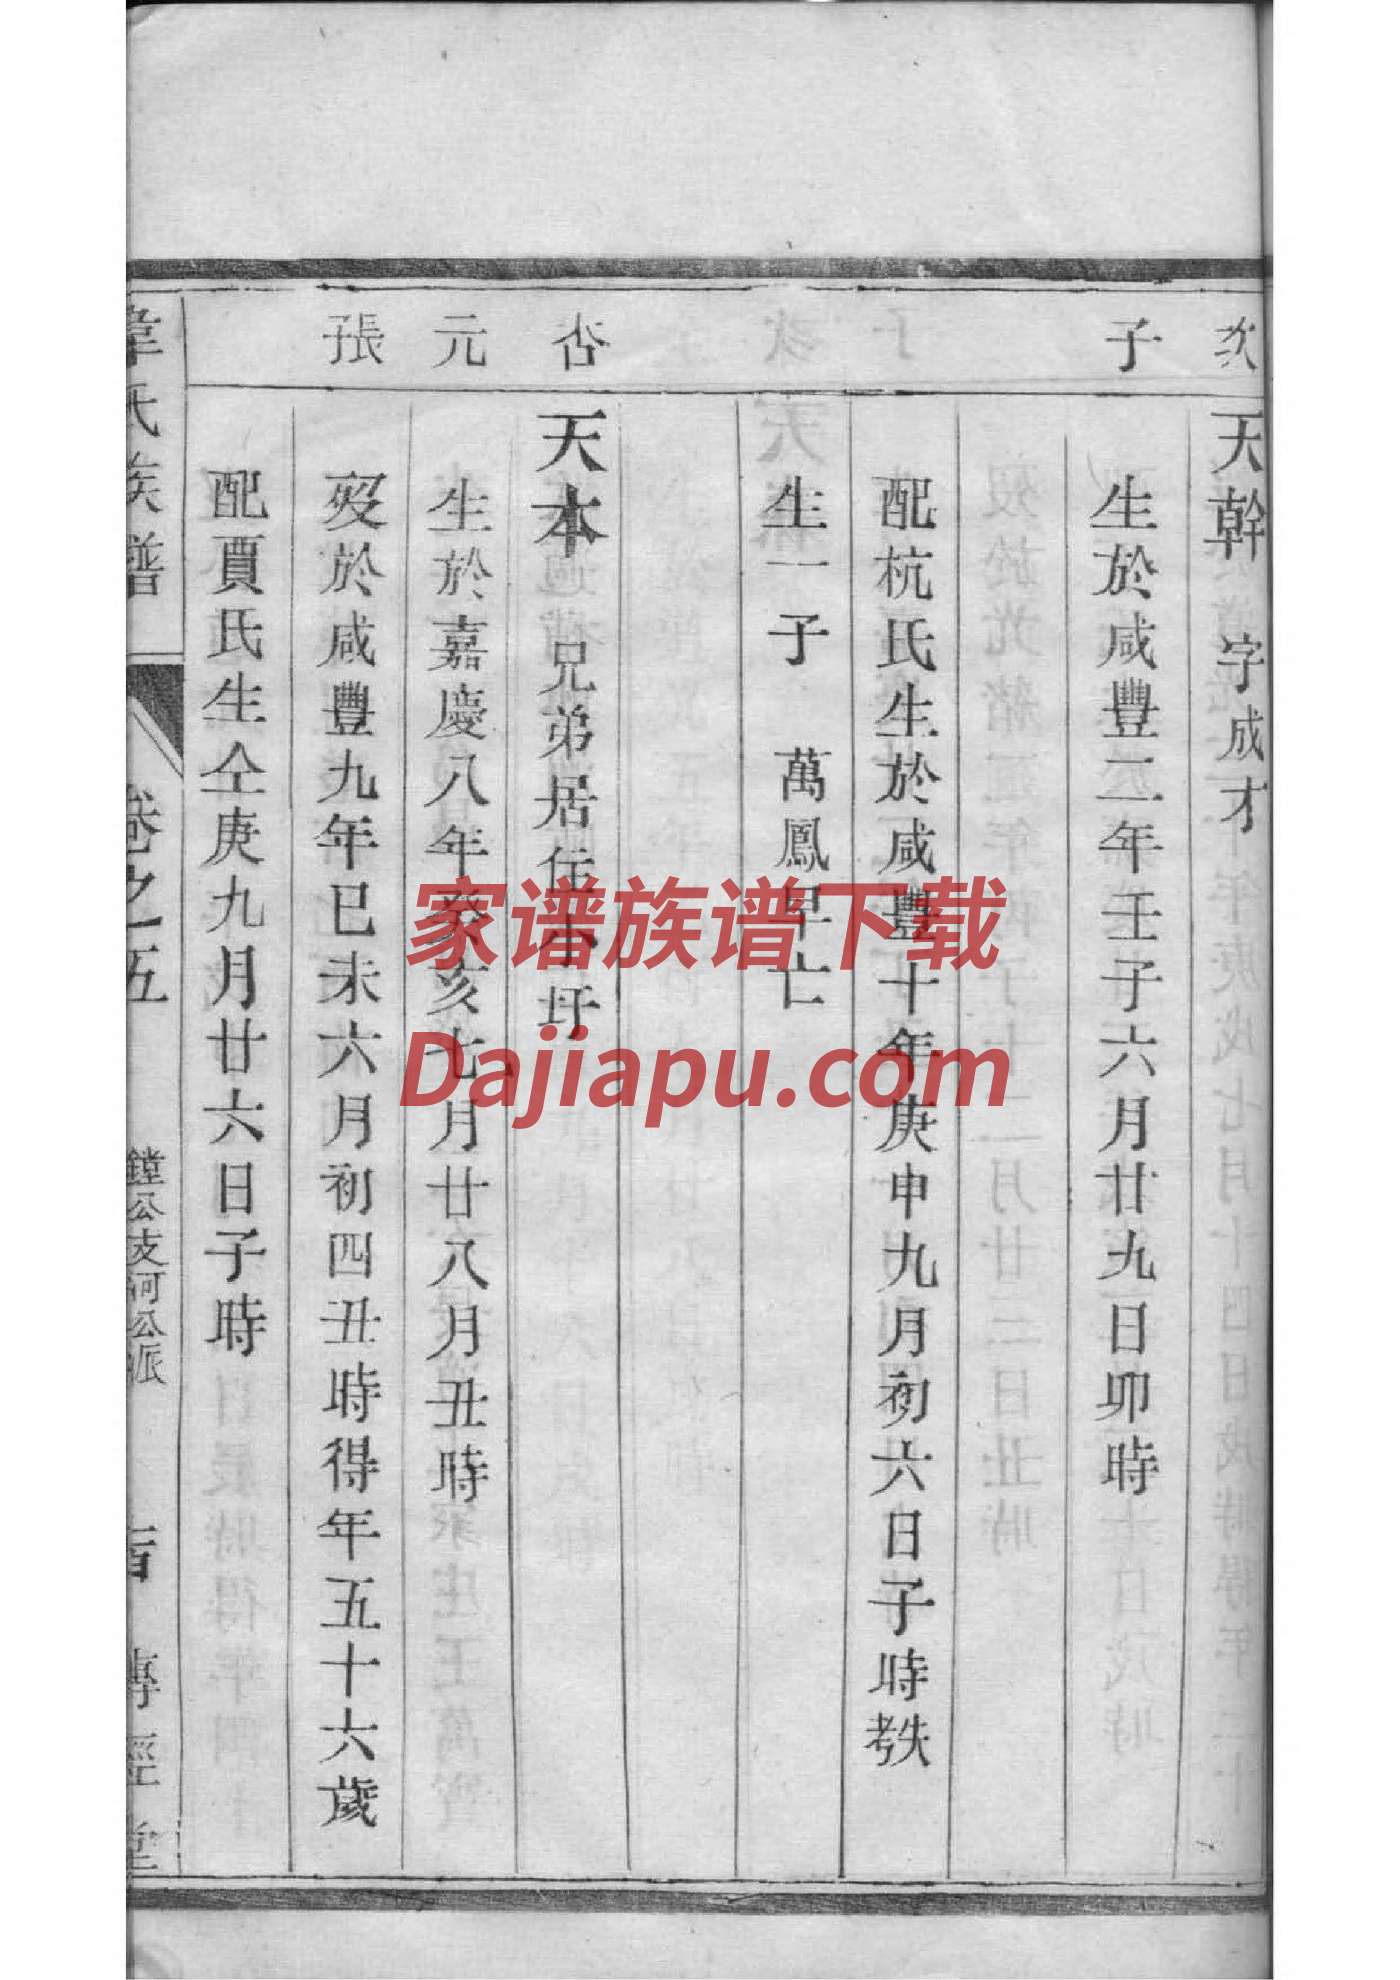 次
子
岙
元
張
天幹 字成才
生於咸豐二年壬子六月廿九日卯時
配杭氏生於咸豐十年庚申九月初六日子時耊
生一子 萬鳳早亡
天本 兄弟居住小圩
生於嘉慶八年癸亥七月廿八月丑時
歿於咸豐九年巳未六月初四丑時得年五十六歲
配賈氏生仝庚九月廿六日子時
韋氏族譜
卷之五
鏜公支河公派
傳經堂
家谱族谱下载
Dajiapu.com